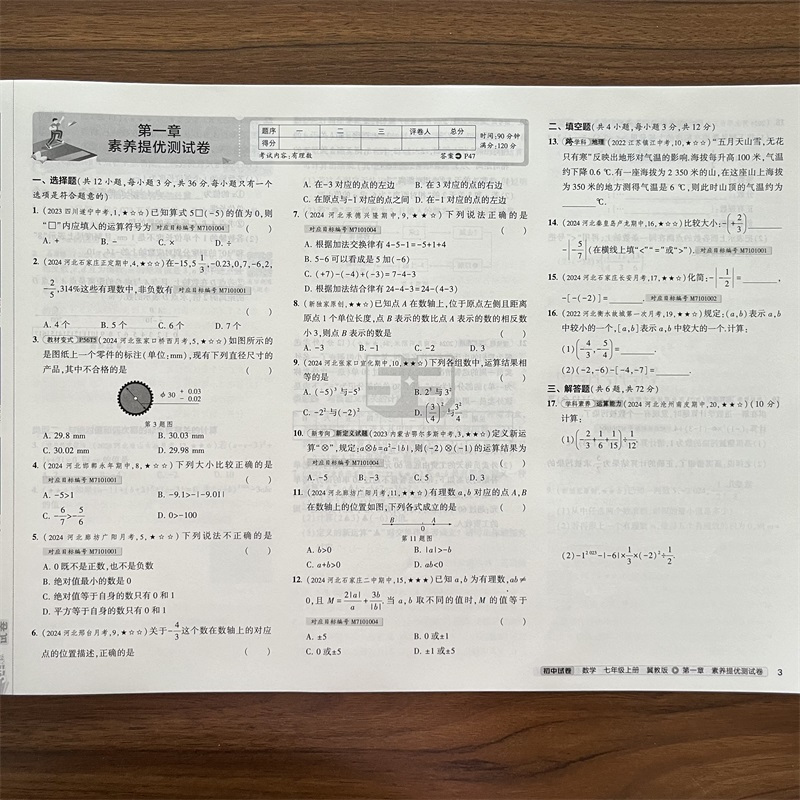 第一章
素养提优测试卷
题序 一 二 三 评卷人 总分
得分
时间:90 分钟
满分:120 分
考试内容:有理数 答案 P47
一、选择题(共 12 小题,每小题 3 分,共 36 分,每小题只有一个
选项是符合题意的)
1. (2023 四川遂宁中考,1,★☆☆)已知算式 5□(-5)的值为 0,则
“□”内应填入的运算符号为 对应目标编号 M7101004 ( )
A. + B. - C. × D. ÷
2. (2024 河北石家庄正定期中,4,★☆☆)在-15,5 1/3,-0.23,0,7,-6,2,
-2/5,314%这些有理数中,非负数有 对应目标编号 M7101001
( )
A. 4 个 B. 5 个 C. 6 个 D. 7 个
3. 教材变式 P56T5 (2024 河北张家口桥西月考,5,★☆☆)如图所示的
是图纸上一个零件的标注(单位:mm),现有下列直径尺寸的
产品,其中不合格的是 ( )
φ30 +0.03 -0.02
第 3 题图
A. 29.8 mm B. 30.03 mm
C. 30.02 mm D. 29.98 mm
4. (2024 河北邯郸永年期中,8,★☆☆)下列大小比较正确的是
对应目标编号 M7101001 ( )
A. -5>1 B. -9.1>-|-9.01|
C. -6/7>-5/6 D. 0>-100
5. (2024 河北廊坊广阳月考,5,★☆☆)下列说法不正确的是
对应目标编号 M7101001 ( )
A. 0 既不是正数,也不是负数
B. 绝对值最小的数是 0
C. 绝对值等于自身的数只有 0 和 1
D. 平方等于自身的数只有 0 和 1
6. (2024 河北邢台月考,9,★☆☆)关于-4/3这个数在数轴上的对应
点的位置描述,正确的是 ( )
A. 在-3 对应的点的左边 B. 在 3 对应的点的右边
C. 在原点与-1 对应的点之间 D. 在-1 对应的点的左边
7. (2024 河北承德兴隆期中,9,★★☆)下列说法正确的是
对应目标编号 M7101004 ( )
A. 根据加法交换律有 4-5-1=-5+1+4
B. 5-6 可以看成是 5 加(-6)
C. (+7)-(-4)+(-3)=7-4-3
D. 根据加法结合律有 24-4-3=24-(4-3)
8. (新独家原创,★★☆)已知点 A 在数轴上,位于原点左侧且距离
原点 1 个单位长度,点 B 表示的数比点 A 表示的数的相反数
小 3,则点 B 表示的数是 ( )
A. -3 B. -1 C. -2 D. 3
9. (2024 河北张家口宣化期中,10,★★☆)下列各组数中,运算结果相
等的是 ( )
A. (-5)³与-5³ B. 2³与 3²
C. -2²与(-2)² D. (3/4)²与3²/4
10. 新考向 新定义试题 (2023 内蒙古鄂尔多斯中考,3,★★☆)定义新运
算“⊗”,规定:a⊗b=a²-|b|,则(-2)⊗(-1)的运算结果为
对应目标编号 M7101004 ( )
A. -5 B. -3 C. 5 D. 3
11. (2024 河北廊坊广阳月考,11,★★☆)有理数 a,b 对应的点 A,B
在数轴上的位置如图,下列各式成立的是 ( )
B A
0
第 11 题图
A. b>0 B. |a|>-b
C. a+b>0 D. ab<0
12. (2024 河北石家庄二中期中,15,★★★)已知 a,b 为有理数,ab≠
0,且 M=2|a|/a+3b/|b|.当 a,b 取不同的值时,M 的值等于
对应目标编号 M7101004 ( )
A. ±5 B. 0 或±1
C. 0 或±5 D. ±1 或±5
二、填空题(共 4 小题,每小题 3 分,共 12 分)
13. 跨学科 地理 (2022 江苏镇江中考,10,★☆☆)“五月天山雪,无花
只有寒”反映出地形对气温的影响.海拔每升高 100 米,气温
约下降 0.6 ℃.有一座海拔为 2 350 米的山,在这座山上海拔
为 350 米的地方测得气温是 6 ℃,则此时山顶的气温约为
______℃.
14. (2024 河北秦皇岛卢龙期中,16,★☆☆)比较大小:-(+2/3)______
-|-5/7|(在横线上填“<”“=”或“>”). 对应目标编号 M7101001
15. (2024 河北石家庄长安月考,17,★★☆)化简:-|-1/2|=______,
-[-(-2)]=______. 对应目标编号 M7101002
16. (2022 河北衡水故城第一次月考,19,★★☆)规定:(a,b)表示 a,b
中较小的一个,[a,b]表示 a,b 中较大的一个.计算:
(1)(-4/3,-5/4)=______.
(2)(-2,-6)-[-4,-7]=______.
三、解答题(共 6 题,共 72 分)
17. 学科素养 运算能力 (2024 河北沧州南皮期中,20,★★☆)(10 分)
计算:
(1)(-2/3+1/6+1/15)÷1/12.
(2)-1²⁰²³-|-6|×1/3×(-2)²÷1/2.
初中试卷 数学 七年级上册 冀教版 第一章 素养提优测试卷 3